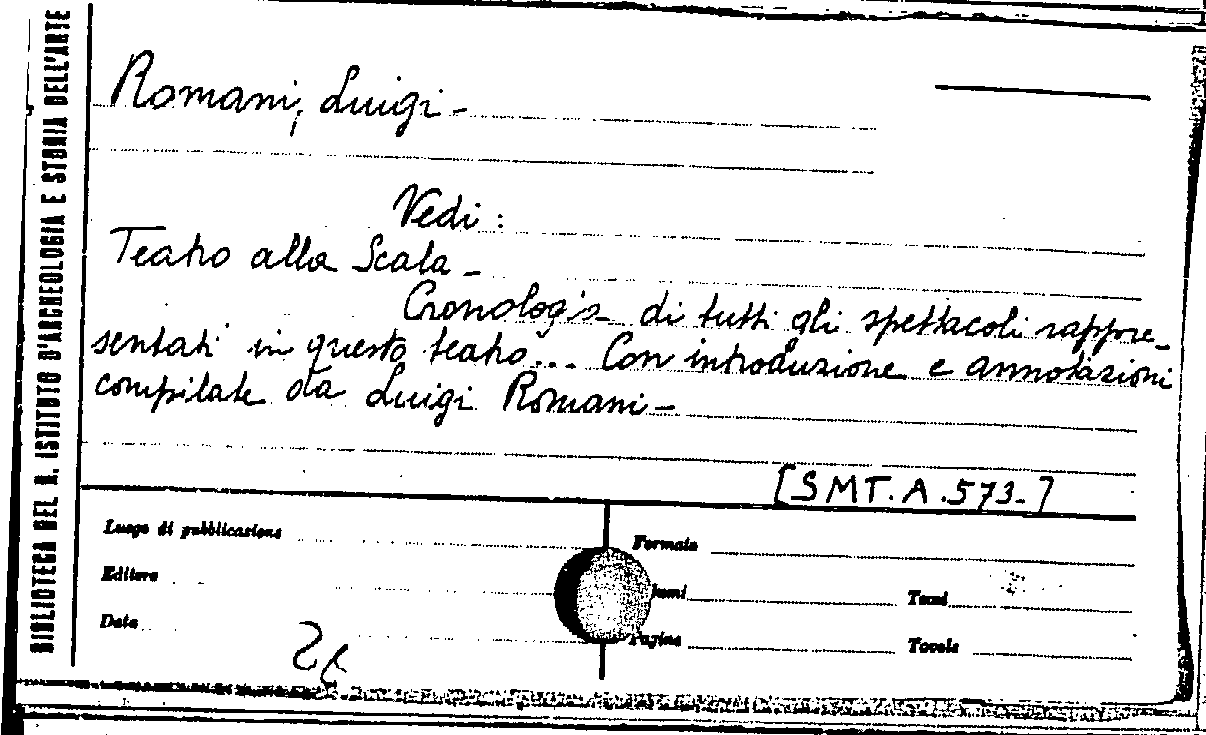 BIBLIOTECA DEL R. ISTITUTO D'ARCHEOLOGIA E STORIA DELL'ARTE
Romani, Luigi -
Vedi :
Teatro alla Scala -
Cronologia di tutti gli spettacoli rappre-
sentati in questo teatro... Con introduzione e annotazioni
compilate da Luigi Romani -
[SMT. A. 573-]
Luogo di pubblicazione
Formato
Editore
Tomi
Data
Pagine
Tavole